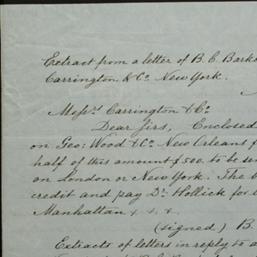 Extract from a letter of B. C. Bark
Carrington & Co. New York.
Messrs. Carrington & Co
Dear sirs, Enclosed
on Geo: Wood & Co. New Orleans f
half of this amount $500. to be sen
on London or New York. The b
credit and pay Dr. Hollick for
Manhattan &. &. &.
(signed) B.
Extracts of letters in reply to a